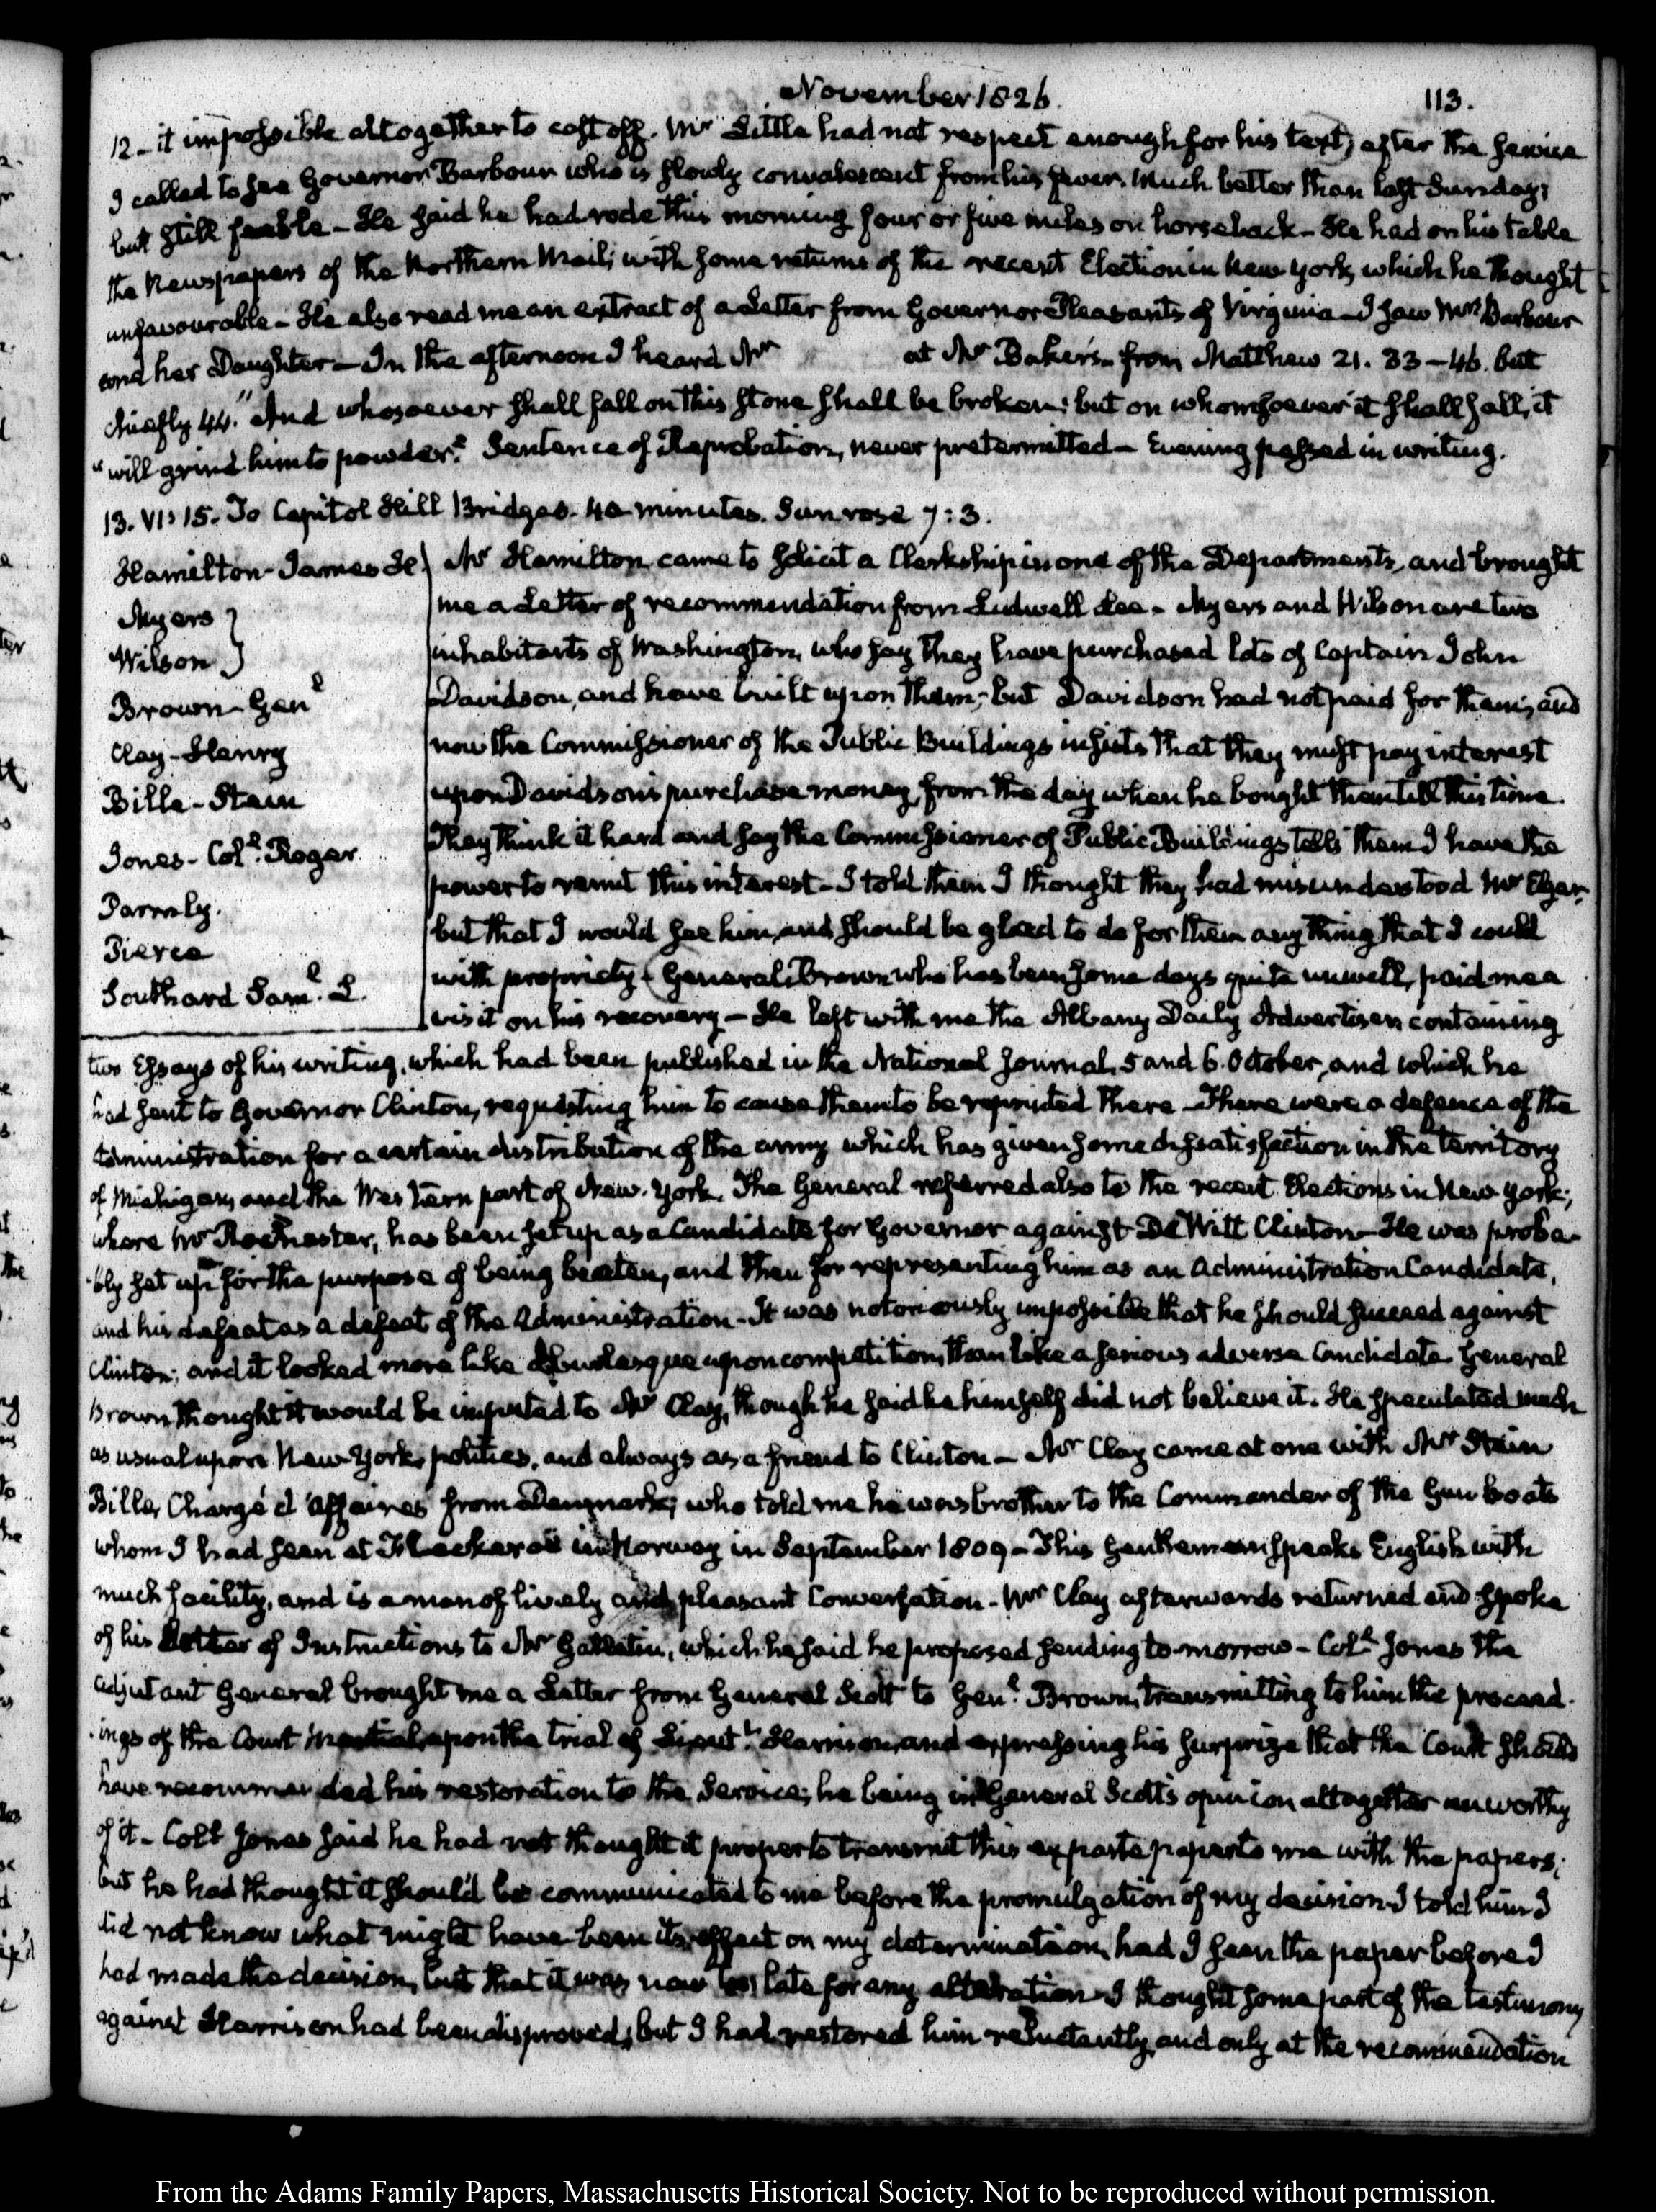 November 1826.
113.
12 - it impossible altogether to cast off. Mr Little had not respect enough for his text, after the service
I called to see Governor Barbour who is slowly convalescent from his fever. Much better than last Sunday;
but still feeble - He said he had rode this morning four or five miles on horseback - He had on his table
the Newspapers of the Northern Mail; with some returns of the recent Election in New York, which he thought
unfavourable - He also read me an extract of a Letter from Governor Pleasants of Virginia - I saw Mrs Barbour
and her Daughter - In the afternoon I heard Mr at Mr Baker's - from Matthew 21. 33-46. but
chiefly 44. "And whosoever shall fall on this stone shall be broken: but on whomsoever it shall fall, it
"will grind him to powder." Sentence of Reprobation, never pretermitted - Evening passed in writing.
13. VI: 15. To Capitol Hill Bridges. 40 minutes. Sun rose 7:3.
Hamilton - James H.
Myers
Wilson
Brown - Genl
Clay - Henry
Bille - Stein
Jones - Coll. Roger
Parmly.
Pierce
Southard Saml. L.
Mr Hamilton came to solicit a Clerkship in one of the Departments, and brought
me a Letter of recommendation from Ludwell Lee - Myers and Wilson are two
inhabitants of Washington, who say they have purchased lots of Captain John
Davidson, and have built upon them; but Davidson had not paid for them, and
now the Commissioner of the Public Buildings insists that they must pay interest
upon Davidson's purchase money, from the day when he bought them till this time.
They think it hard and say the Commissioner of Public Buildings tells them I have the
power to remit this interest - I told them I thought they had misunderstood Mr Elgar,
but that I would see him, and should be glad to do for them any thing that I could
with propriety - General Brown who has been some days quite unwell, paid me a
visit on his recovery - He left with me the Albany Daily Advertiser containing
two Essays of his writing, which had been published in the National Journal, 5 and 6. October, and which he
had sent to Governor Clinton, requesting him to cause them to be reprinted there - There were a defence of the
Administration for a certain distribution of the army which has given some dissatisfaction in the territory
of Michigan, and the Western part of New-York. The General referred also to the recent Elections in New York;
where Mr Rochester, has been set up as a Candidate for Governor against De Witt Clinton - He was proba-
bly set up for the purpose of being beaten, and then for representing him as an Administration Candidate,
and his defeat as a defeat of the Administration - It was notoriously impossible that he should succeed against
Clinton; and it looked more like a burlesque upon competition, than like a serious adverse Candidate. General
Brown thought it would be imputed to Mr Clay, though he said he himself did not believe it. He speculated much
as usual upon New-York politics, and always as a friend to Clinton - Mr Clay came at one with Mr Stein
Bille, Chargé d'affaires from Denmark; who told me he was brother to the Commander of the Gun boats
whom I had seen at in Norway in September 1809 - This Gentleman speaks English with
much facility, and is a man of lively and pleasant Conversation - Mr Clay afterwards returned and spoke
of his Letter of Instructions to Mr Gallatin, which he said he proposed sending to-morrow - Coll Jones the
adjutant General brought me a Letter from General Scott to Genl. Brown, transmitting to him the proceed-
ings of the Court Martial upon the trial of Lieutt Harrison, and expressing his surprize that the Court should
have recommended his restoration to the Service; he being in General Scott's opinion altogether unworthy
of it - Coll Jones said he had not thought it proper to transmit this exparte paper to me with the papers;
but he had thought it should be communicated to me before the promulgation of my decision - I told him I
did not know what might have been its effect on my determination, had I seen the paper before I
had made the decision, but that it was now too late for any alteration - I thought some part of the testimony
against Harrison had been disproved, but I had restored him reluctantly, and only at the recommendation
From the Adams Family Papers, Massachusetts Historical Society. Not to be reproduced without permission.